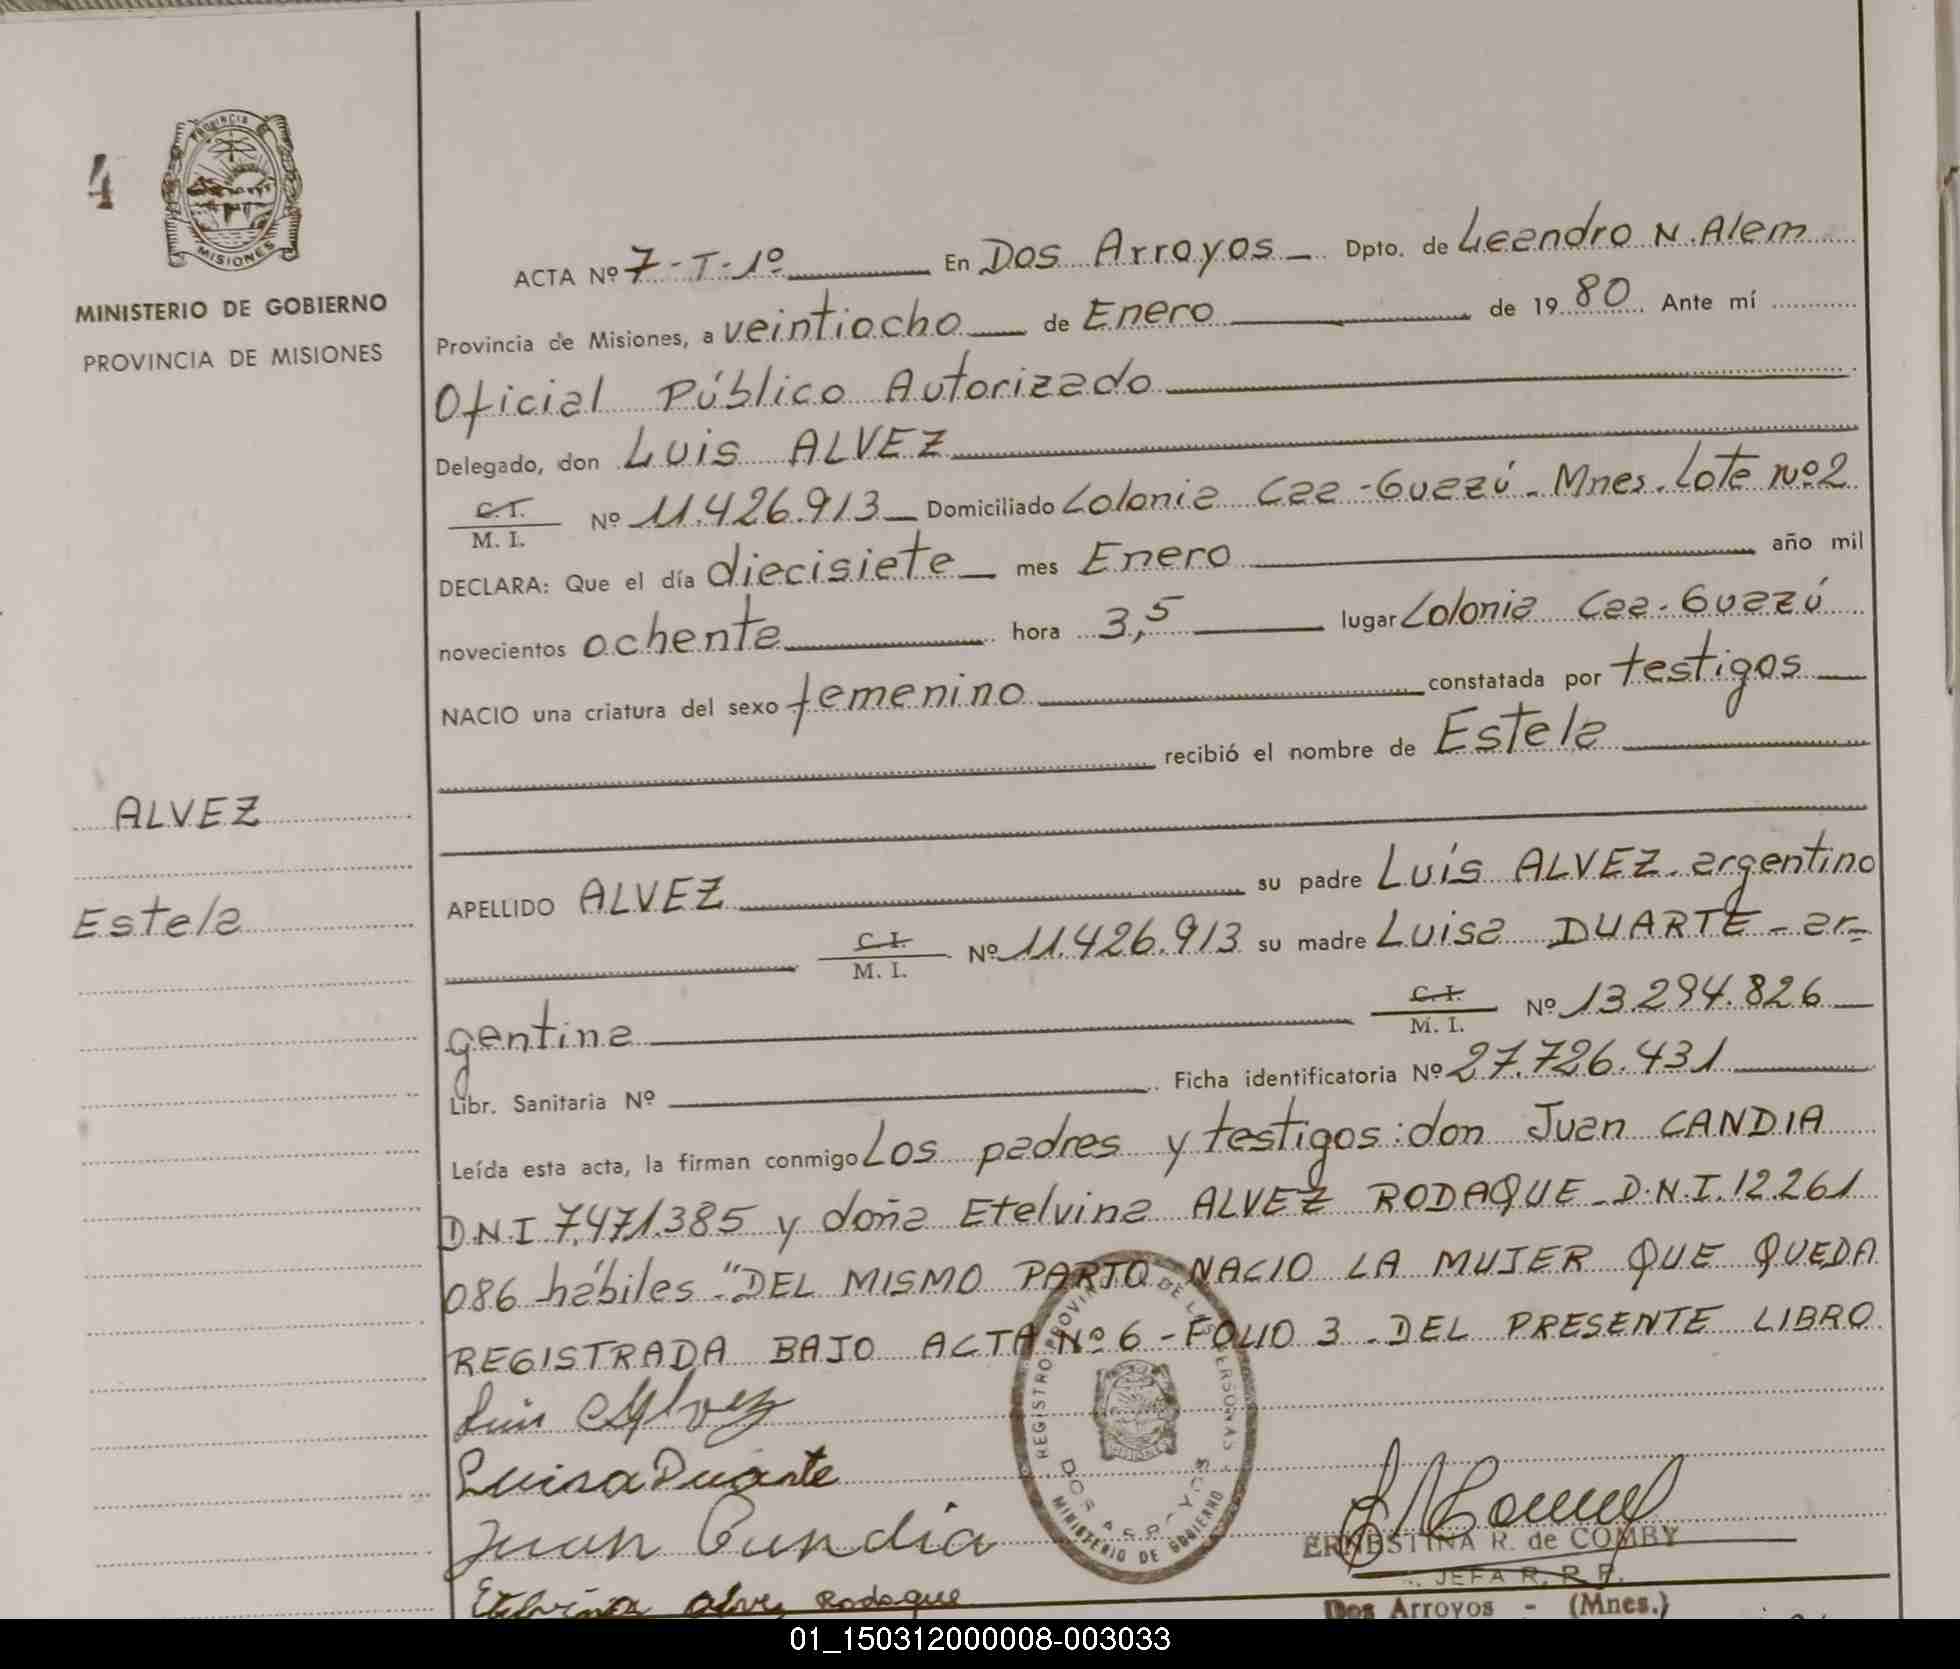 4
PROVINCIA DE
MISIONES
MINISTERIO DE GOBIERNO
PROVINCIA DE MISIONES
ALVEZ
Estela
ACTA Nº 7-T-1º En Dos Arroyos - Dpto. de Leandro N. Alem
Provincia de Misiones, a veintiocho de Enero de 1980. Ante mí
Oficial Público Autorizado
Delegado, don Luis ALVEZ
C.I. / M. I. Nº 11.426.913 Domiciliado Colonia Caa-Guazú - Mnes. Lote Nº 2
DECLARA: Que el día diecisiete mes Enero año mil
novecientos ochenta hora 3,5 lugar Colonia Caa-Guazú
NACIO una criatura del sexo femenino constatada por testigos
recibió el nombre de Estela
APELLIDO ALVEZ su padre Luis ALVEZ - argentino
C. I. / M. I. Nº 11.426.913 su madre Luisa DUARTE - ar=
gentina C. I. / M. I. Nº 13.294.826
Libr. Sanitaria Nº Ficha identificatoria Nº 27.726.431
Leída esta acta, la firman conmigo Los padres y testigos: don Juan CANDIA
D.N.I 7.471.385 y doña Etelvina ALVEZ RODAQUE - D.N.I. 12.261
086 hábiles - "DEL MISMO PARTO NACIO LA MUJER QUE QUEDA
REGISTRADA BAJO ACTA Nº 6 - FOLIO 3 - DEL PRESENTE LIBRO
Luis Alvez
Luisa Duarte
Juan Candia
Etelvina Alvez Rodaque
REGISTRO PROVINCIAL DE LAS PERSONAS
DOS ARROYOS
MINISTERIO DE GOBIERNO
ERNESTINA R. de COMBY
JEFA R. P. P.
Dos Arroyos - (Mnes.)
01_150312000008-003033